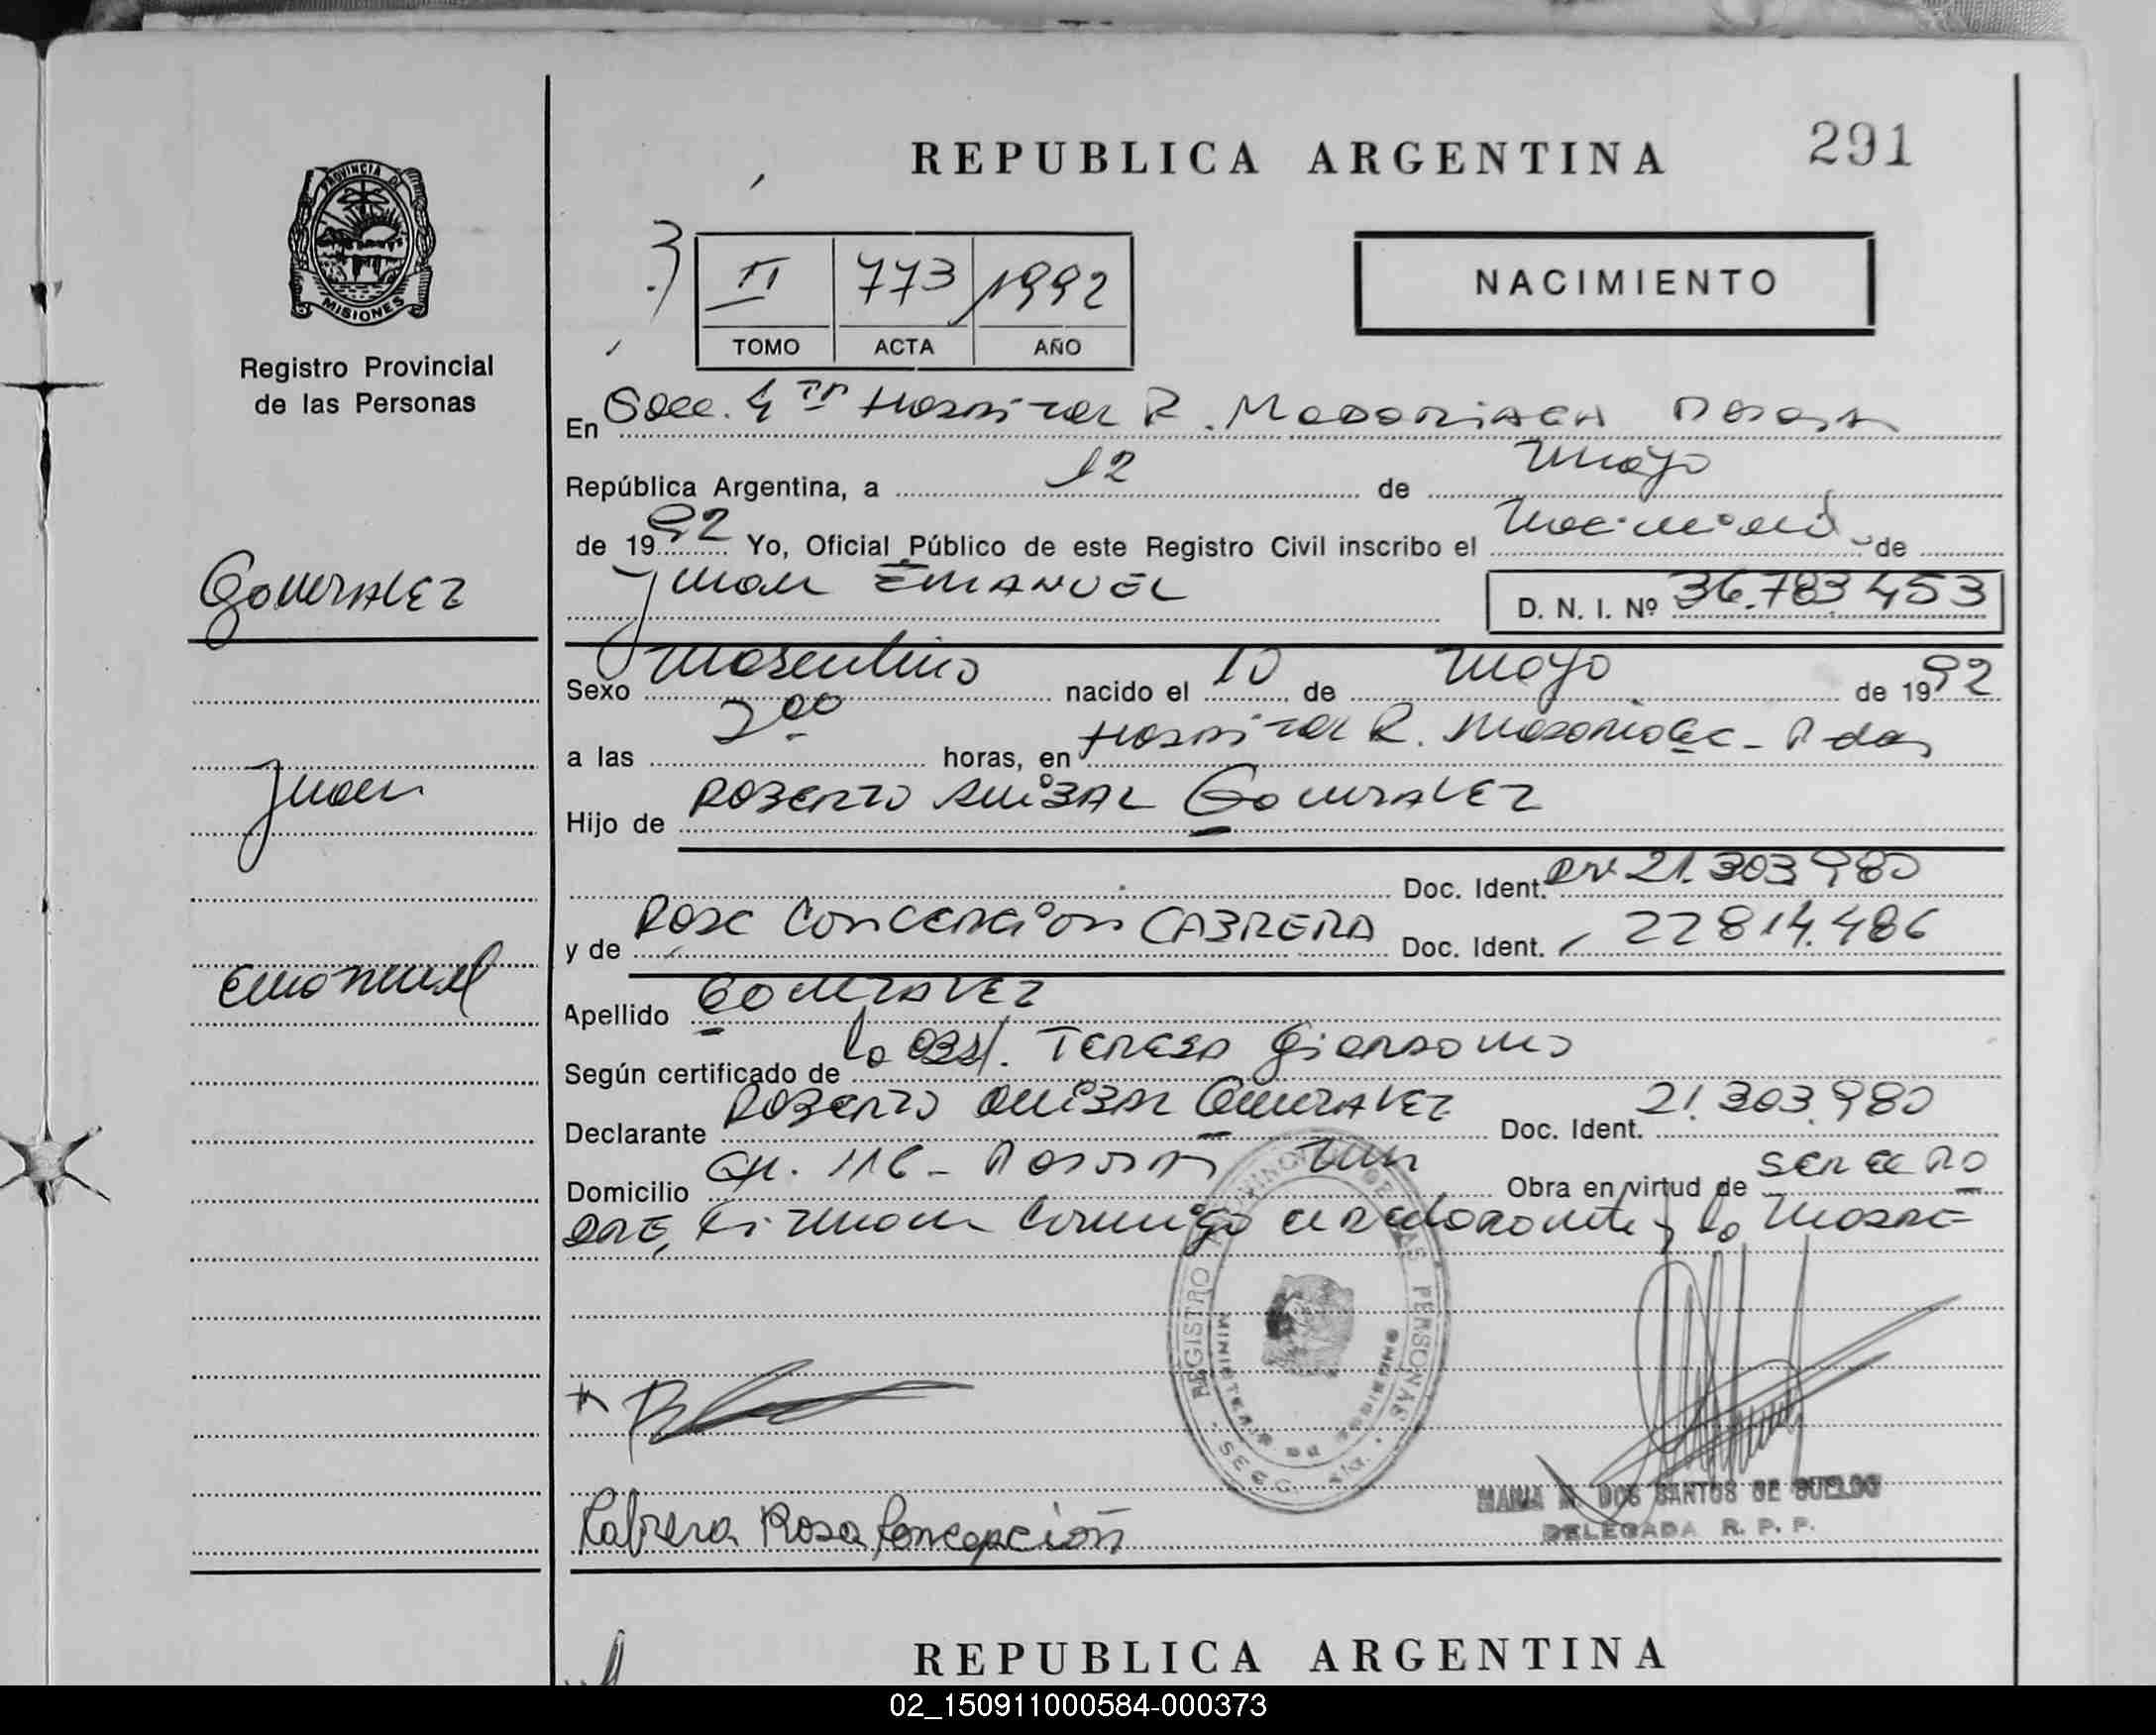 REPUBLICA ARGENTINA
291
PROVINCIA DE
MISIONES
Registro Provincial
de las Personas
II 773 1992
TOMO ACTA AÑO
NACIMIENTO
En Secc. 4ta Hospital R. Madariaga Posadas
República Argentina, a 12 de mayo
de 1992 Yo, Oficial Público de este Registro Civil inscribo el de
Juan EMANUEL
D. N. I. Nº 36.783.453
Gonzalez
Juan
Emanuel
Sexo Masculino nacido el 10 de mayo de 1992
a las horas, en Hospital R. Madariaga - Pdas
Hijo de ROBERTO ANIBAL GONZALEZ
Doc. Ident. 21.303.980
y de ROSA CONCEPCION CABRERA Doc. Ident. 22814.486
Apellido GONZALEZ
Según certificado de la Obst. TERESA
Declarante ROBERTO ANIBAL GONZALEZ Doc. Ident. 21.303.980
Domicilio Ch. 116 - Posadas Mnes Obra en virtud de SER EL PA
DRE, Firman conmigo el declarante y la MADRE
REGISTRO PROVINCIAL DE LAS PERSONAS
Cabrera Rosa Concepción
MARIA DOS SANTOS DE
DELEGADA R. P. P.
REPUBLICA ARGENTINA
02_150911000584-000373